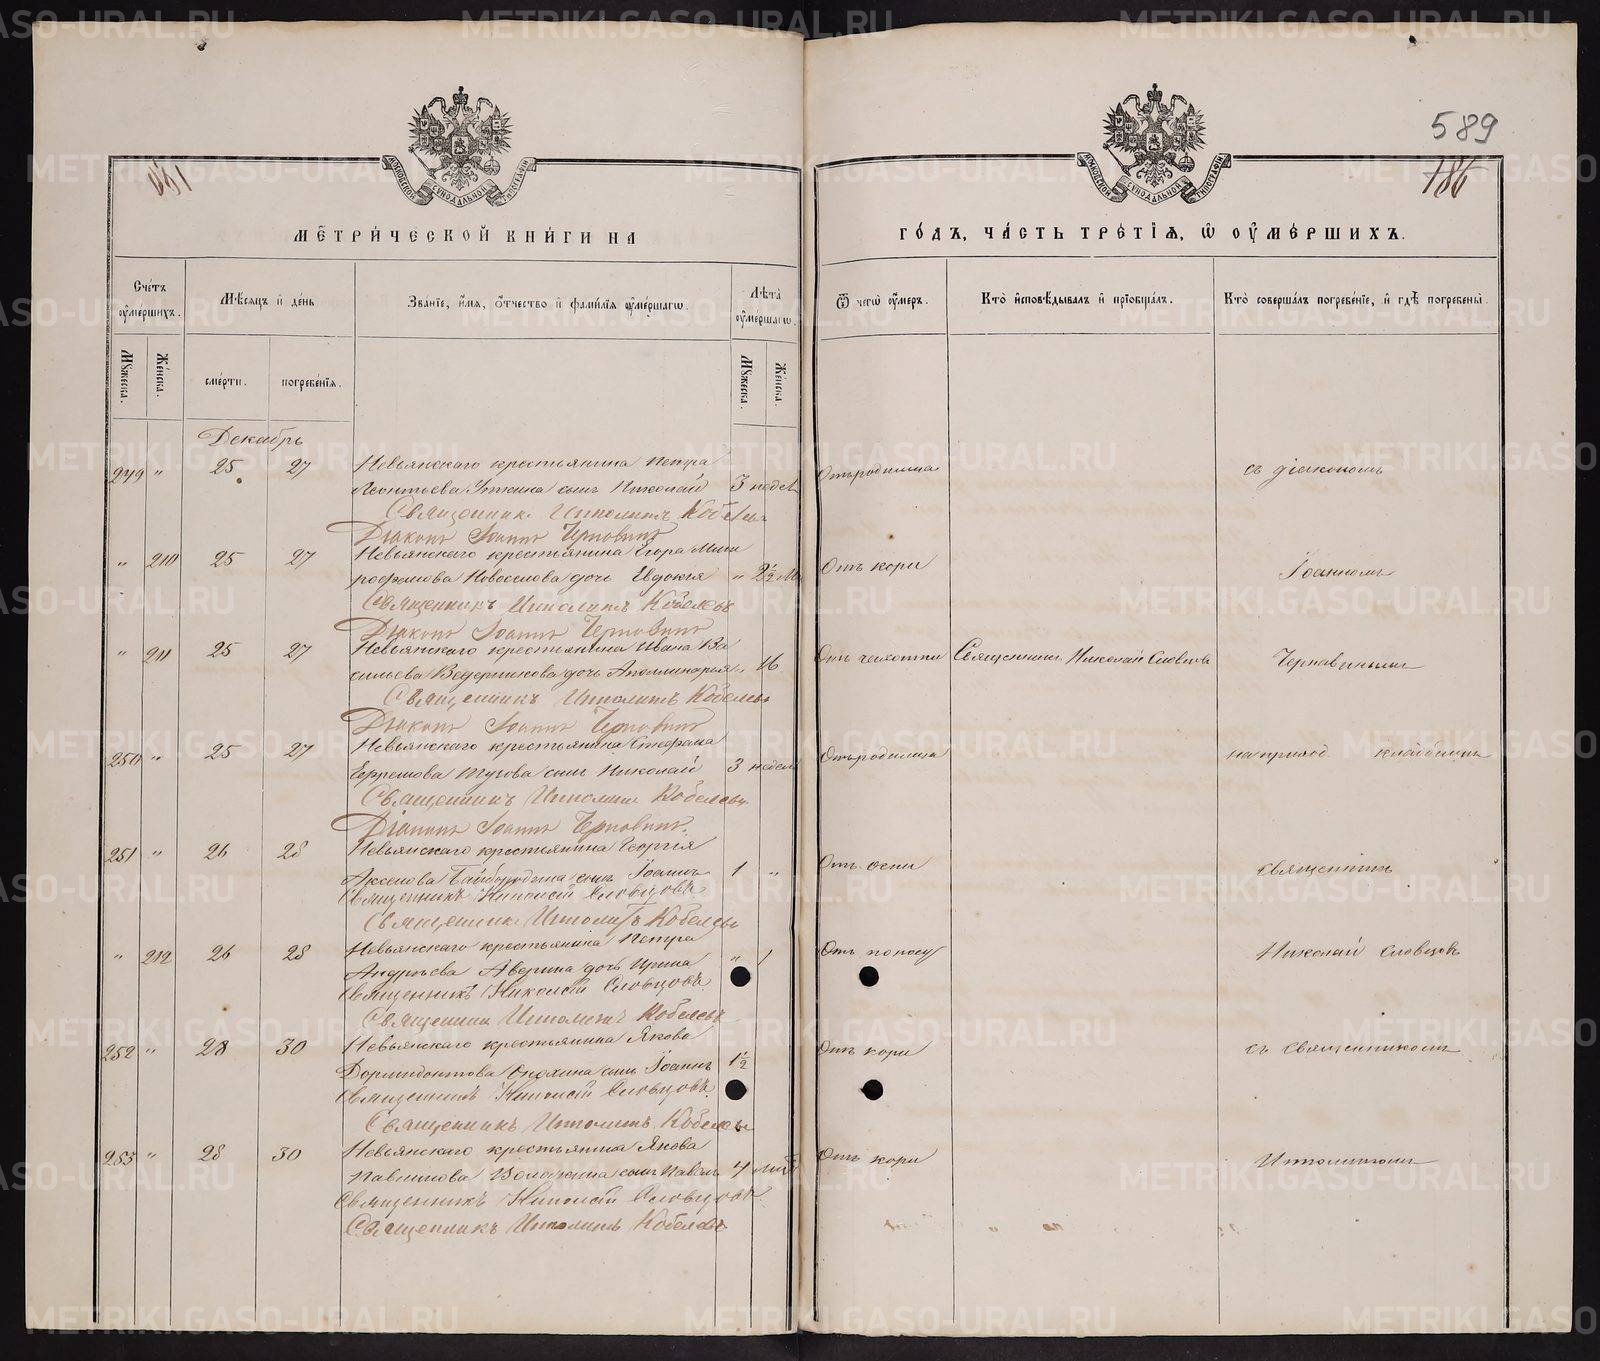 589
186
МЕТРИЧЕСКОЙ КНИГИ НА
ГОДЪ, ЧАСТЬ ТРЕТІЯ, Ѿ ОУМЕРШИХЪ.
Счетъ оумершихъ.
Мѣсяцъ и день
Званіе, имя, отчество и фамилія оумершагѡ.
Лѣта оумершагѡ.
Ѿ чегѡ оумеръ.
Кто исповѣдывалъ и пріобщалъ.
Кто совершалъ погребеніе, и гдѣ погребены.
Мужеска.
Женска.
смерти.
погребенія.
Мужеска.
Женска.
Декабрь
249 " 25 27 Невьянскаго крестьянина Петра
Леонтьева сынъ Николай 3 недел Отъ родимца съ діакономъ
Священникъ Ипполитъ Кобелевъ
Діаконъ Іоаннъ Чернавинъ
" 210 25 27 Невьянскаго крестьянина Егора Мит
рофанова Новоселова дочь Евдокія " 2½ м Отъ кори Іоанномъ
Священникъ Ипполитъ Кобелевъ
Діаконъ Іоаннъ Чернавинъ
" 211 25 27 Невьянскаго крестьянина Ивана Ва
сильева Ведерникова дочь Аполлинарія " 16 Отъ чахотки Священникъ Николай Словцовъ Чернавинымъ
Священникъ Ипполитъ Кобелевъ
Діаконъ Іоаннъ Чернавинъ
250 " 25 27 Невьянскаго крестьянина Стефана
Ефремова сынъ Николай 3 недел Отъ родимца на приход. кладбищѣ
Священникъ Ипполитъ Кобелевъ
Діаконъ Іоаннъ Чернавинъ
251 " 26 28 Невьянскаго крестьянина Георгія
Аксенова Байбородина сынъ Іоаннъ 1 " Отъ оспы священникъ
Священникъ Николай Словцовъ
Священникъ Ипполитъ Кобелевъ
" 212 26 28 Невьянскаго крестьянина Петра
Андреева Аверина дочь Ирина " 1 Отъ поносу Николай Словцовъ
Священникъ Николай Словцовъ
Священникъ Ипполитъ Кобелевъ
252 " 28 30 Невьянскаго крестьянина Якова
Дормидонтова сынъ Іоаннъ 1½ Отъ кори съ священникомъ
Священникъ Николай Словцовъ
Священникъ Ипполитъ Кобелевъ
253 " 28 30 Невьянскаго крестьянина Якова
Павлинова сынъ Павелъ 4 Отъ кори Ипполитомъ
Священникъ Николай Словцовъ
Священникъ Ипполитъ Кобелевъ
METRIKI.GASO-URAL.RU